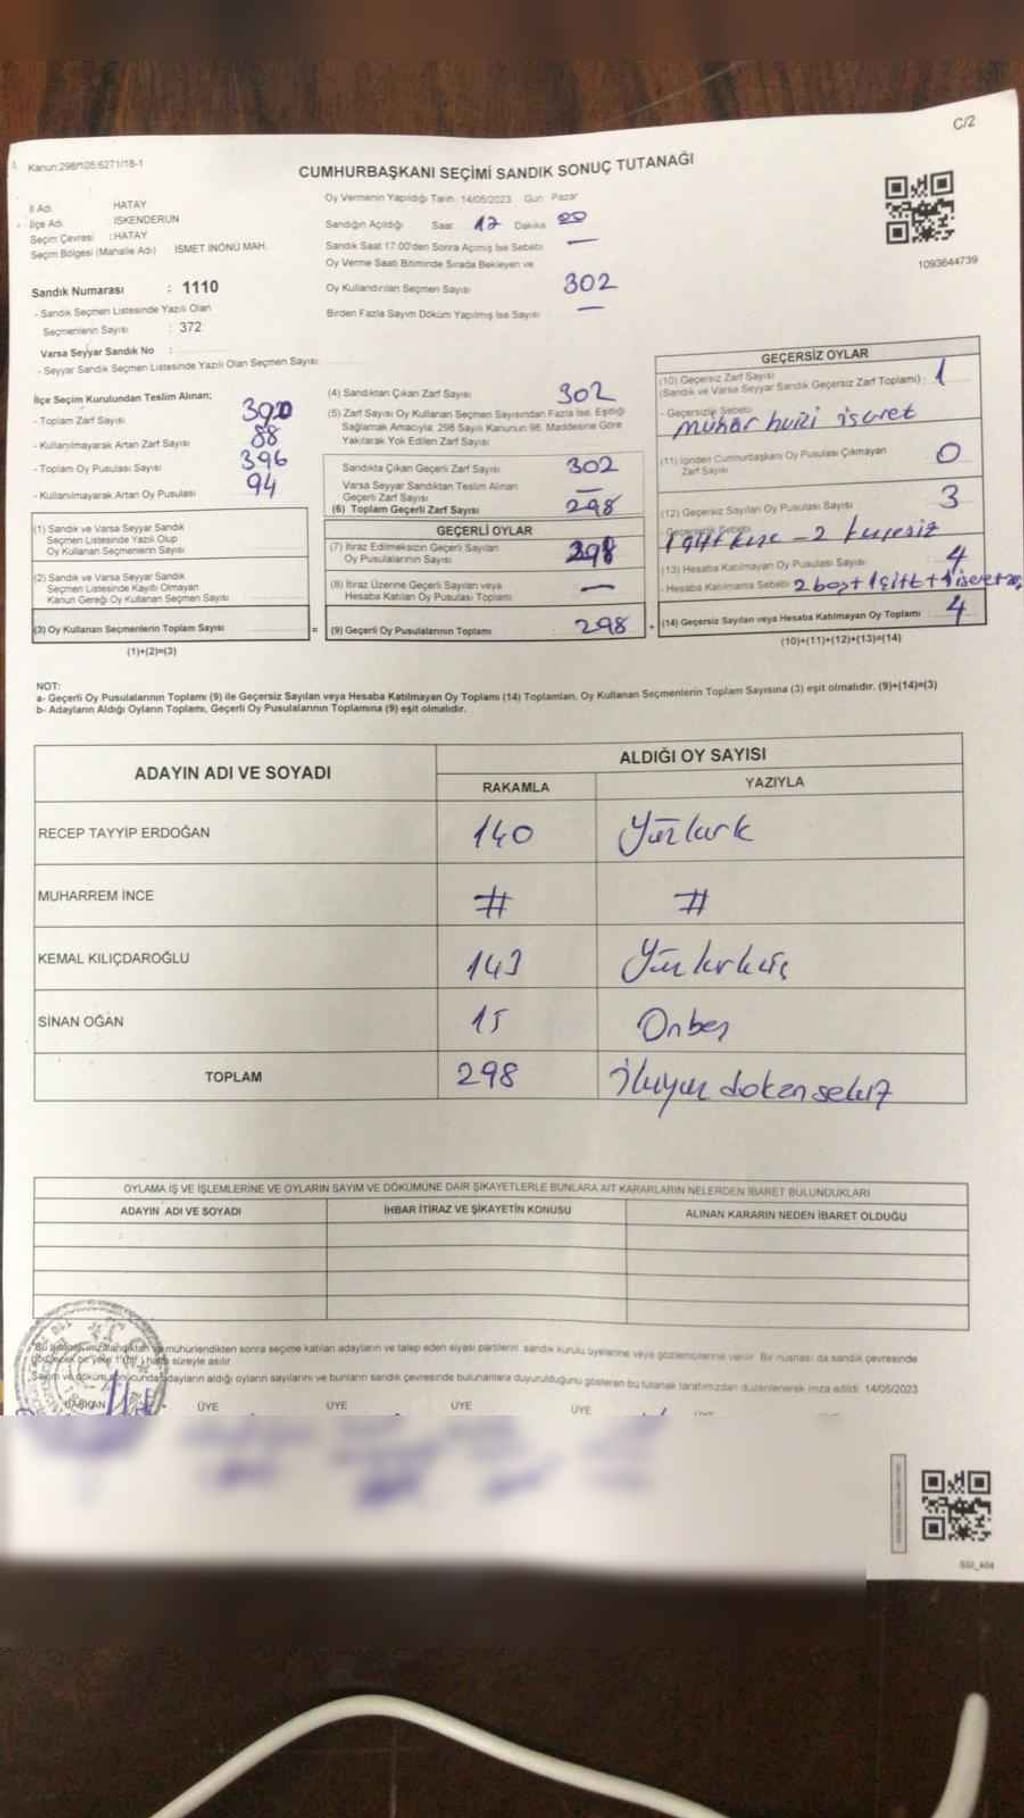 C/2
Kanun:298/105:6271/18-1
CUMHURBAŞKANI SEÇİMİ SANDIK SONUÇ TUTANAĞI
İl Adı HATAY
İlçe Adı İSKENDERUN
Seçim Çevresi :HATAY
Seçim Bölgesi (Mahalle Adı) İSMET İNÖNÜ MAH.
Sandık Numarası : 1110
- Sandık Seçmen Listesinde Yazılı Olan
Seçmenlerin Sayısı : 372
Varsa Seyyar Sandık No :
- Seyyar Sandık Seçmen Listesinde Yazılı Olan Seçmen Sayısı
Oy Vermenin Yapıldığı Tarih: 14/05/2023 Gün: Pazar
Sandığın Açıldığı Saat 17 Dakika 00
Sandık Saat 17.00'den Sonra Açımış İse Sebebi —
Oy Verme Saati Bitiminde Sırada Bekleyen ve
Oy Kullandırılan Seçmen Sayısı 302
Birden Fazla Sayım Döküm Yapılmış İse Sayısı —
1093644739
İlçe Seçim Kurulundan Teslim Alınan;
- Toplam Zarf Sayısı 390
- Kullanılmayarak Artan Zarf Sayısı 88
- Toplam Oy Pusulası Sayısı 396
- Kullanılmayarak Artan Oy Pusulası 94
(1) Sandık ve Varsa Seyyar Sandık
Seçmen Listesinde Yazılı Olup
Oy Kullanan Seçmenlerin Sayısı
(2) Sandık ve Varsa Seyyar Sandık
Seçmen Listesinde Kayıtlı Olmayan
Kanun Gereği Oy Kullanan Seçmen Sayısı
(3) Oy Kullanan Seçmenlerin Toplam Sayısı =
(1)+(2)=(3)
(4) Sandıktan Çıkan Zarf Sayısı 302
(5) Zarf Sayısı Oy Kullanan Seçmen Sayısından Fazla İse, Eşitliği
Sağlamak Amacıyla, 298 Sayılı Kanunun 98. Maddesine Göre
Yakılarak Yok Edilen Zarf Sayısı
Sandıkta Çıkan Geçerli Zarf Sayısı 302
Varsa Seyyar Sandıktan Teslim Alınan
Geçerli Zarf Sayısı —
(6) Toplam Geçerli Zarf Sayısı 298
GEÇERLİ OYLAR
(7) İtiraz Edilmeksizin Geçerli Sayılan
Oy Pusulalarının Sayısı 298
(8) İtiraz Üzerine Geçerli Sayılan veya
Hesaba Katılan Oy Pusulası Toplamı —
(9) Geçerli Oy Pusulalarının Toplamı 298 +
GEÇERSİZ OYLAR
(10) Geçersiz Zarf Sayısı
(Sandık ve Varsa Seyyar Sandık Geçersiz Zarf Toplamı) 1
- Geçersizlik Sebebi
mühür harici işaret
(11) İçinden Cumhurbaşkanı Oy Pusulası Çıkmayan
Zarf Sayısı 0
(12) Geçersiz Sayılan Oy Pusulası Sayısı 3
(13) Hesaba Katılmayan Oy Pusulası Sayısı 4
- Hesaba Katılmama Sebebi 2 boş + 1 çift + 1
(14) Geçersiz Sayılan veya Hesaba Katılmayan Oy Toplamı 4
(10)+(11)+(12)+(13)=(14)
NOT:
a- Geçerli Oy Pusulalarının Toplamı (9) ile Geçersiz Sayılan veya Hesaba Katılmayan Oy Toplamı (14) Toplamları, Oy Kullanan Seçmenlerin Toplam Sayısına (3) eşit olmalıdır. (9)+(14)=(3)
b- Adayların Aldığı Oyların Toplamı, Geçerli Oy Pusulalarının Toplamına (9) eşit olmalıdır.
ADAYIN ADI VE SOYADI
ALDIĞI OY SAYISI
RAKAMLA YAZIYLA
RECEP TAYYİP ERDOĞAN 140 Yüzkırk
MUHARREM İNCE # #
KEMAL KILIÇDAROĞLU 143 Yüzkırküç
SİNAN OĞAN 15 Onbeş
TOPLAM 298 İkiyüz doksansekiz
OYLAMA İŞ VE İŞLEMLERİNE VE OYLARIN SAYIM VE DÖKÜMÜNE DAİR ŞİKAYETLERLE BUNLARA AİT KARARLARIN NELERDEN İBARET BULUNDUKLARI
ADAYIN ADI VE SOYADI İHBAR İTİRAZ VE ŞİKAYETİN KONUSU ALINAN KARARIN NEDEN İBARET OLDUĞU
mühürlendikten sonra seçime katılan adayların ve talep eden siyasi partilerin, sandık kurulu üyelerine veya gözlemcilerine verilir. Bir nüshası da sandık çevresinde
süreyle asılır
adayların aldığı oyların sayılarını ve bunların sandık çevresinde bulunanlara duyurulduğunu gösteren bu tutanak tarafımızdan düzenlenerek imza edildi. 14/05/2023
BAŞKAN ÜYE ÜYE ÜYE ÜYE